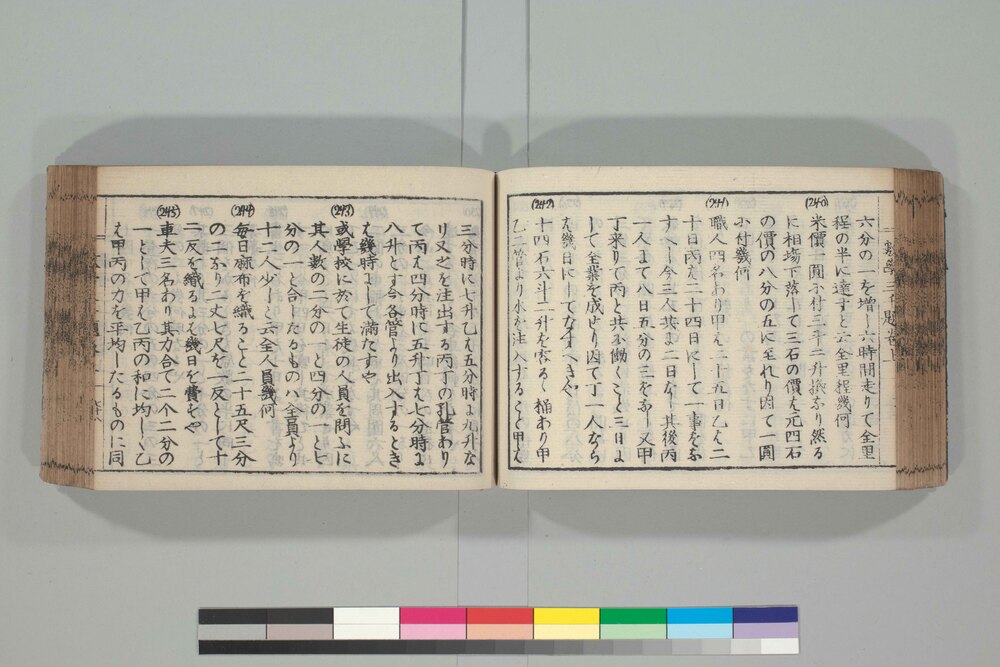 六分の一を増し六時間走りて全里
程の半に達すと云全里程幾何
(240)
米價一圓に付三斗二升換なり然る
に相場下落して三石の價は元四石
の價の八分の五に至れり因て一圓
に付幾何
(241)
職人四名あり甲は二十五日乙は二
十日丙は二十四日にして一事をな
すべし今三人共に二日なし其後丙
一人にて八日五分の三をなし又甲
丁来りて丙と共に働くこと三日に
して全業を成せり因て丁一人なら
は幾日にしてなすべきや
(242)
十四石六斗二升を容るゝ桶あり甲
乙二管より水を注入するとき甲は
三分時に七升乙は五分時に九升な
り又之を注出する丙丁の孔管あり
て丙は四分時に五升丁は七分時に
八升とす今各管より出入するとき
は幾時にして満たすや
(243)
或學校に於て生徒の人員を問ふに
其人数の二分の一と四分の一と七
分の一と合したるものハ全員より
十二人少しと云全人員幾何
(244)
毎日麻布を織ること二十五尺三分
の二なり二丈七尺を一反として十
二反を織るには幾日を費すや
(245)
車夫三名あり其力合て二个二分の
一として甲は乙丙の和に均しく乙
は甲丙の力を平均したるものに同